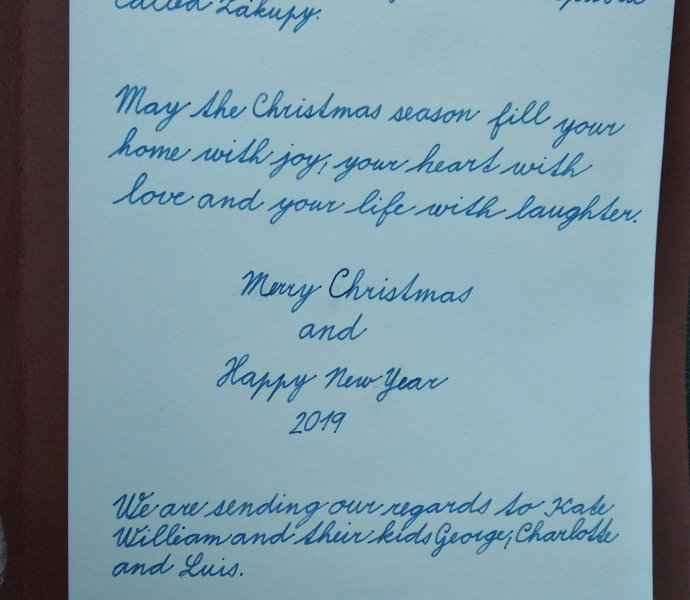 called Zákupy.
May the Christmas season fill your
home with joy, your heart with
love and your life with laughter.
Merry Christmas
and
Happy New Year
2019
We are sending our regards to Kate
William and their kids George, Charlotte
and Luis.